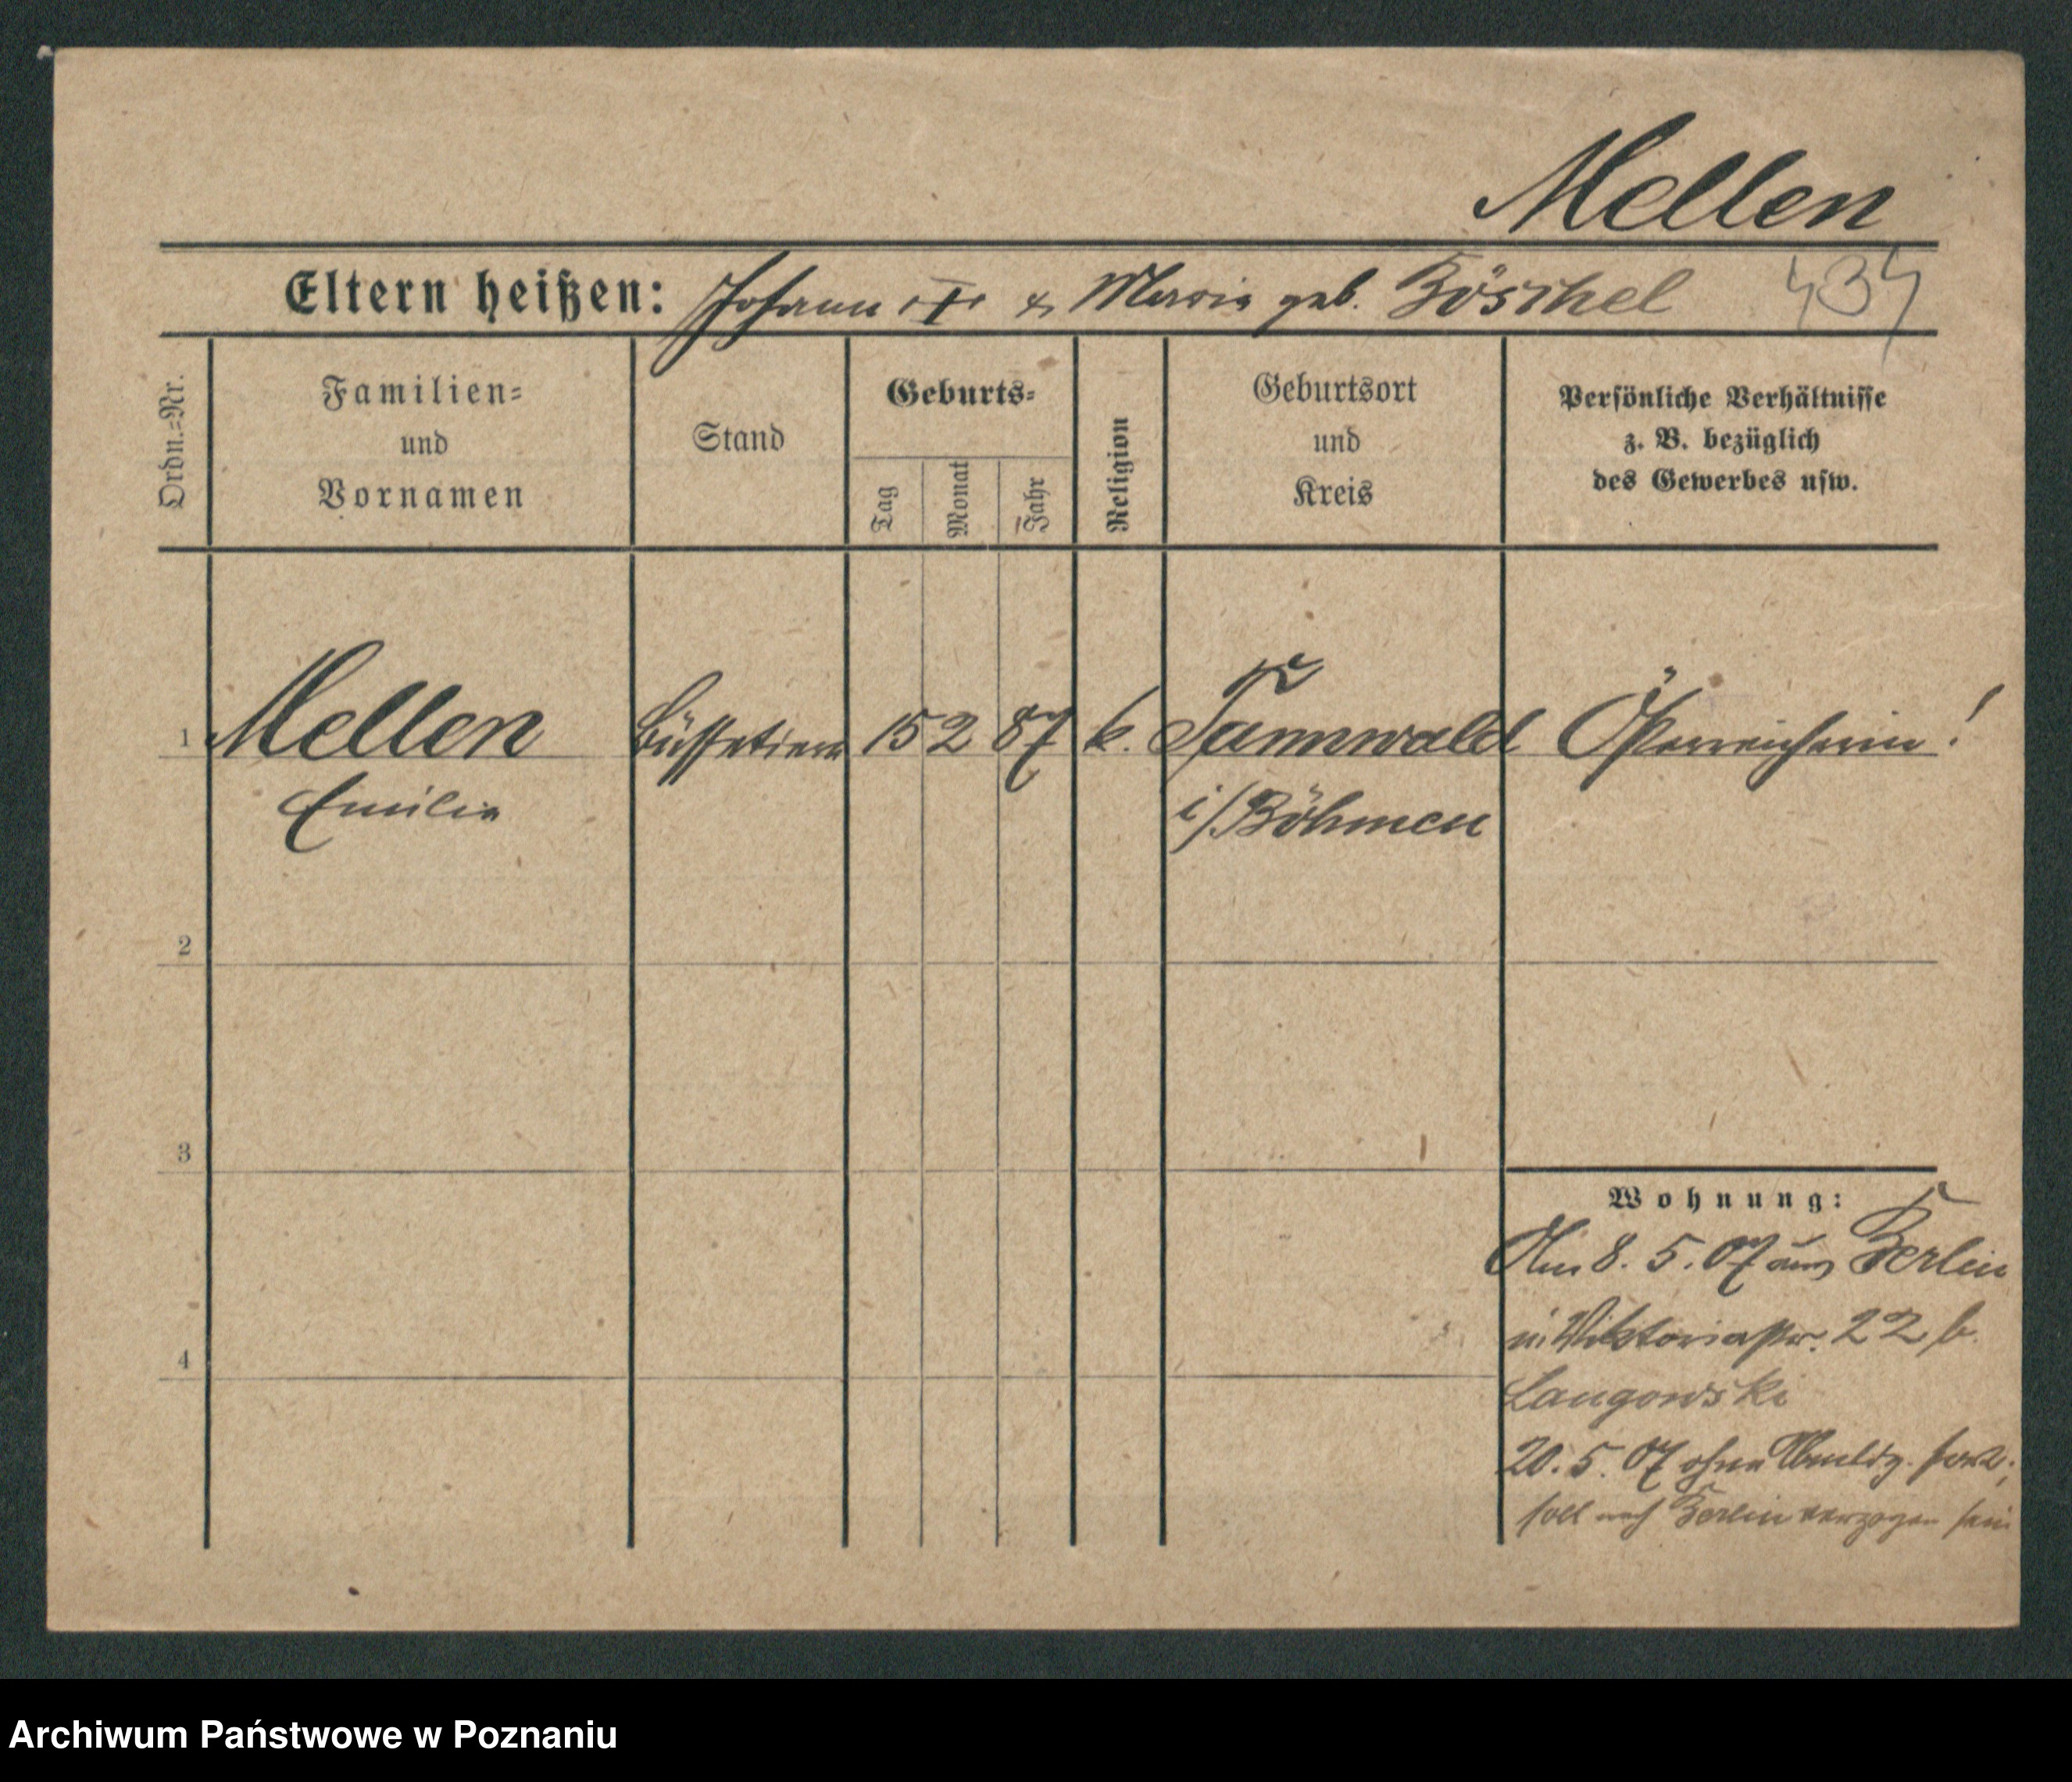 Mellen
Eltern heißen: Johann & Maria geb. Böschel 434
Ordn.=Nr.
Familien=
und
Vornamen
Stand
Geburts=
Tag
Monat
Jahr
Religion
Geburtsort
und
Kreis
Persönliche Verhältnisse
z. B. bezüglich
des Gewerbes usw.
1 Mellen Büffetiere 15 2 87 k. Tannwald Österreicherin!
Emilie i/Böhmen
2
3
Wohnung:
Am 8. 5. 07 aus Berlin
in Viktoriastr. 22 b.
4
Langowski
20. 5. 07 ohne Abmeldg. fort;
soll nach Berlin verzogen sein
Archiwum Państwowe w Poznaniu